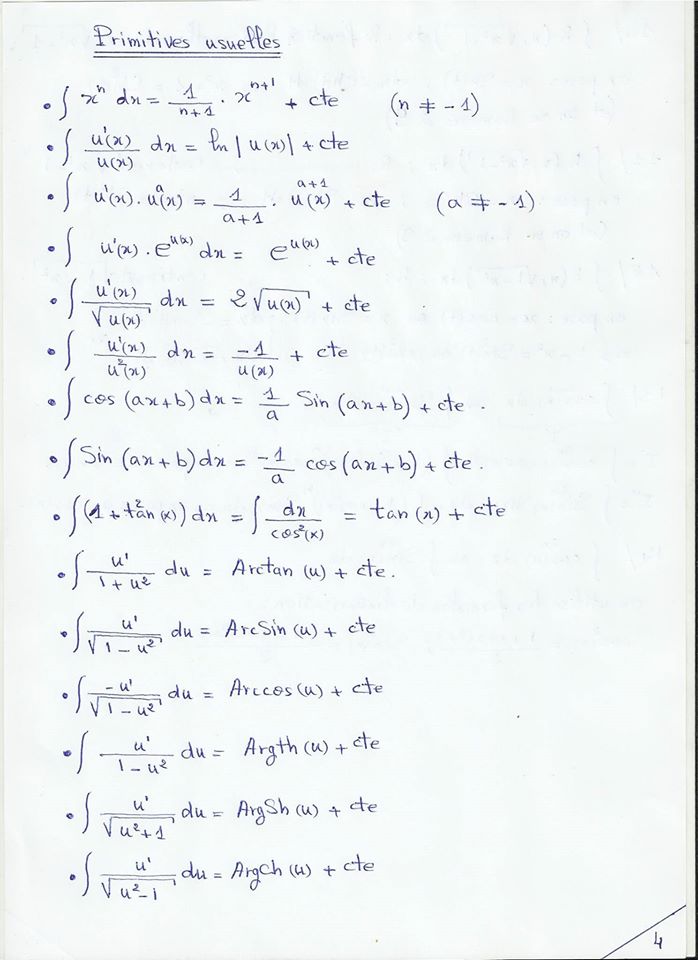 Primitives usuelles
• ∫ xⁿ dx = 1/(n+1) · xⁿ⁺¹ + cte (n ≠ -1)
• ∫ u'(x)/u(x) dx = ln |u(x)| + cte
• ∫ u'(x) . uᵃ(x) = 1/(a+1) · uᵃ⁺¹(x) + cte (a ≠ -1)
• ∫ u'(x) . e^u(x) dx = e^u(x) + cte
• ∫ u'(x)/√u(x) dx = 2 √u(x) + cte
• ∫ u'(x)/u²(x) dx = -1/u(x) + cte
• ∫ cos (ax+b) dx = 1/a Sin (ax+b) + cte .
• ∫ Sin (ax+b) dx = -1/a cos (ax+b) + cte .
• ∫ (1 + tan²(x)) dx = ∫ dx/cos²(x) = tan (x) + cte
• ∫ u'/(1+u²) du = Arctan (u) + cte .
• ∫ u'/√(1-u²) du = ArcSin (u) + cte
• ∫ -u'/√(1-u²) du = Arccos (u) + cte
• ∫ u'/(1-u²) du = Argth (u) + cte
• ∫ u'/√(u²+1) du = ArgSh (u) + cte
• ∫ u'/√(u²-1) du = ArgCh (u) + cte
4